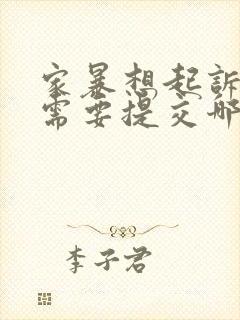 家暴想起訴
需要提交哪
李子君